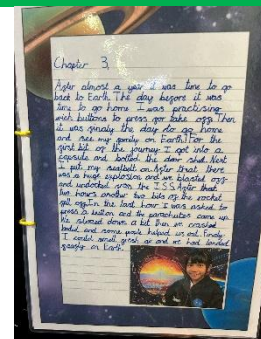 Chapter 3
After almost a year it was time to go
back to Earth. The day before it was
time to go home I was practising
wich buttons to press for take off. Then
it was finaly the day to go home
and see my family on Earth! For the
first bit of the journey I got into a
capsule and bolted the door shut. Next
I put my seatbelt on. After that there
was a huge explosion and we blasted off
and undocked from the I.S.S. After that
two hours another two bits of the rocket
fell off. In the last hour I was asked to
press a button and the parachutes came up.
We slowed down a bit then we crashed
landed and some people helped us out. Finaly
I could smell fresh air and we had landed
safely on Earth.